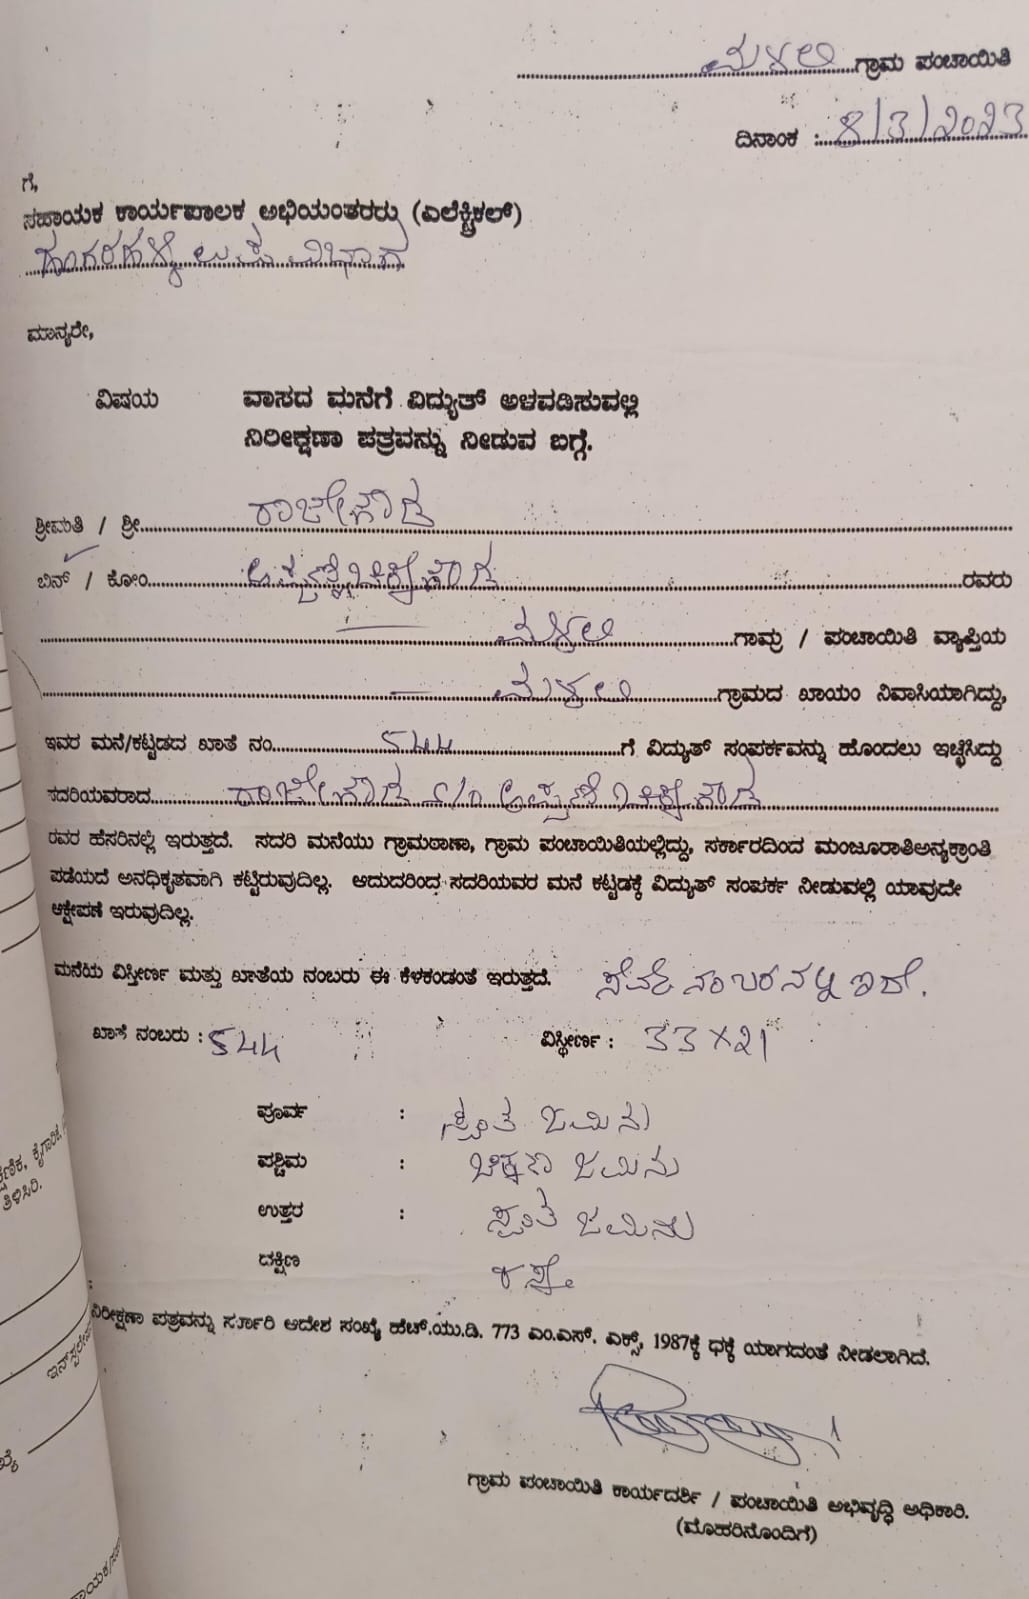 ಮಳಲಿ ಗ್ರಾಮ ಪಂಚಾಯಿತಿ
ದಿನಾಂಕ : 8/3/2023
ಗೆ,
ಸಹಾಯಕ ಕಾರ್ಯಪಾಲಕ ಅಭಿಯಂತರರು (ಎಲೆಕ್ಟ್ರಿಕಲ್)
ಉಪ ವಿಭಾಗ
ಮಾನ್ಯರೇ,
ವಿಷಯ ವಾಸದ ಮನೆಗೆ ವಿದ್ಯುತ್ ಅಳವಡಿಸುವಲ್ಲಿ
ನಿರೀಕ್ಷಣಾ ಪತ್ರವನ್ನು ನೀಡುವ ಬಗ್ಗೆ.
ಶ್ರೀಮತಿ / ಶ್ರೀ ರಾಜೇಗೌಡ
ಬಿನ್ / ಕೋಂ ರವರು
ಮಳಲಿ ಗಾಮ್ರ / ಪಂಚಾಯಿತಿ ವ್ಯಾಪ್ತಿಯ
ಮಳಲಿ ಗ್ರಾಮದ ಖಾಯಂ ನಿವಾಸಿಯಾಗಿದ್ದು,
ಇವರ ಮನೆ/ಕಟ್ಟಡದ ಖಾತೆ ನಂ. 544 ಗೆ ವಿದ್ಯುತ್ ಸಂಪರ್ಕವನ್ನು ಹೊಂದಲು ಇಚ್ಛಿಸಿದ್ದು
ಸದರಿಯವರಾದ ರಾಜೇಗೌಡ
ರವರ ಹೆಸರಿನಲ್ಲಿ ಇರುತ್ತದೆ. ಸದರಿ ಮನೆಯು ಗ್ರಾಮಠಾಣಾ, ಗ್ರಾಮ ಪಂಚಾಯಿತಿಯಲ್ಲಿದ್ದು, ಸರ್ಕಾರದಿಂದ ಮಂಜೂರಾತಿಅನ್ಯಕ್ರಾಂತಿ
ಪಡೆಯದೆ ಅನಧಿಕೃತವಾಗಿ ಕಟ್ಟಿರುವುದಿಲ್ಲ. ಆದುದರಿಂದ ಸದರಿಯವರ ಮನೆ ಕಟ್ಟಡಕ್ಕೆ ವಿದ್ಯುತ್ ಸಂಪರ್ಕ ನೀಡುವಲ್ಲಿ ಯಾವುದೇ
ಆಕ್ಷೇಪಣೆ ಇರುವುದಿಲ್ಲ.
ಮನೆಯ ವಿಸ್ತೀರ್ಣ ಮತ್ತು ಖಾತೆಯ ನಂಬರು ಈ ಕೆಳಕಂಡಂತೆ ಇರುತ್ತದೆ.
ಖಾತೆ ನಂಬರು : 544 ವಿಸ್ತೀರ್ಣ : 33 X 21
ಪೂರ್ವ : ಸ್ವಂತ ಜಮೀನು
ಪಶ್ಚಿಮ : ಜಮೀನು
ಉತ್ತರ : ಸ್ವಂತ ಜಮೀನು
ದಕ್ಷಿಣ ರಸ್ತೆ
ನಿರೀಕ್ಷಣಾ ಪತ್ರವನ್ನು ಸರ್ಕಾರಿ ಆದೇಶ ಸಂಖ್ಯೆ ಹೆಚ್.ಯು.ಡಿ. 773 ಎಂ.ಎಸ್. ಎಕ್ಸ್, 1987ಕ್ಕೆ ಧಕ್ಕೆ ಯಾಗದಂತೆ ನೀಡಲಾಗಿದೆ.
ಗ್ರಾಮ ಪಂಚಾಯಿತಿ ಕಾರ್ಯದರ್ಶಿ / ಪಂಚಾಯಿತಿ ಅಭಿವೃದ್ಧಿ ಅಧಿಕಾರಿ.
(ಮೊಹರಿನೊಂದಿಗೆ)
ತಿಳಿಸಿರಿ.